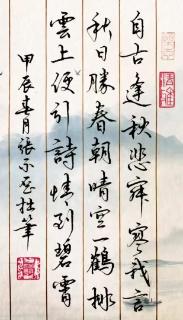 自古逢秋悲寂寥我言
秋日勝春朝晴空一鶴排
雲上便引詩情到碧霄
甲辰春月張示卷拙筆